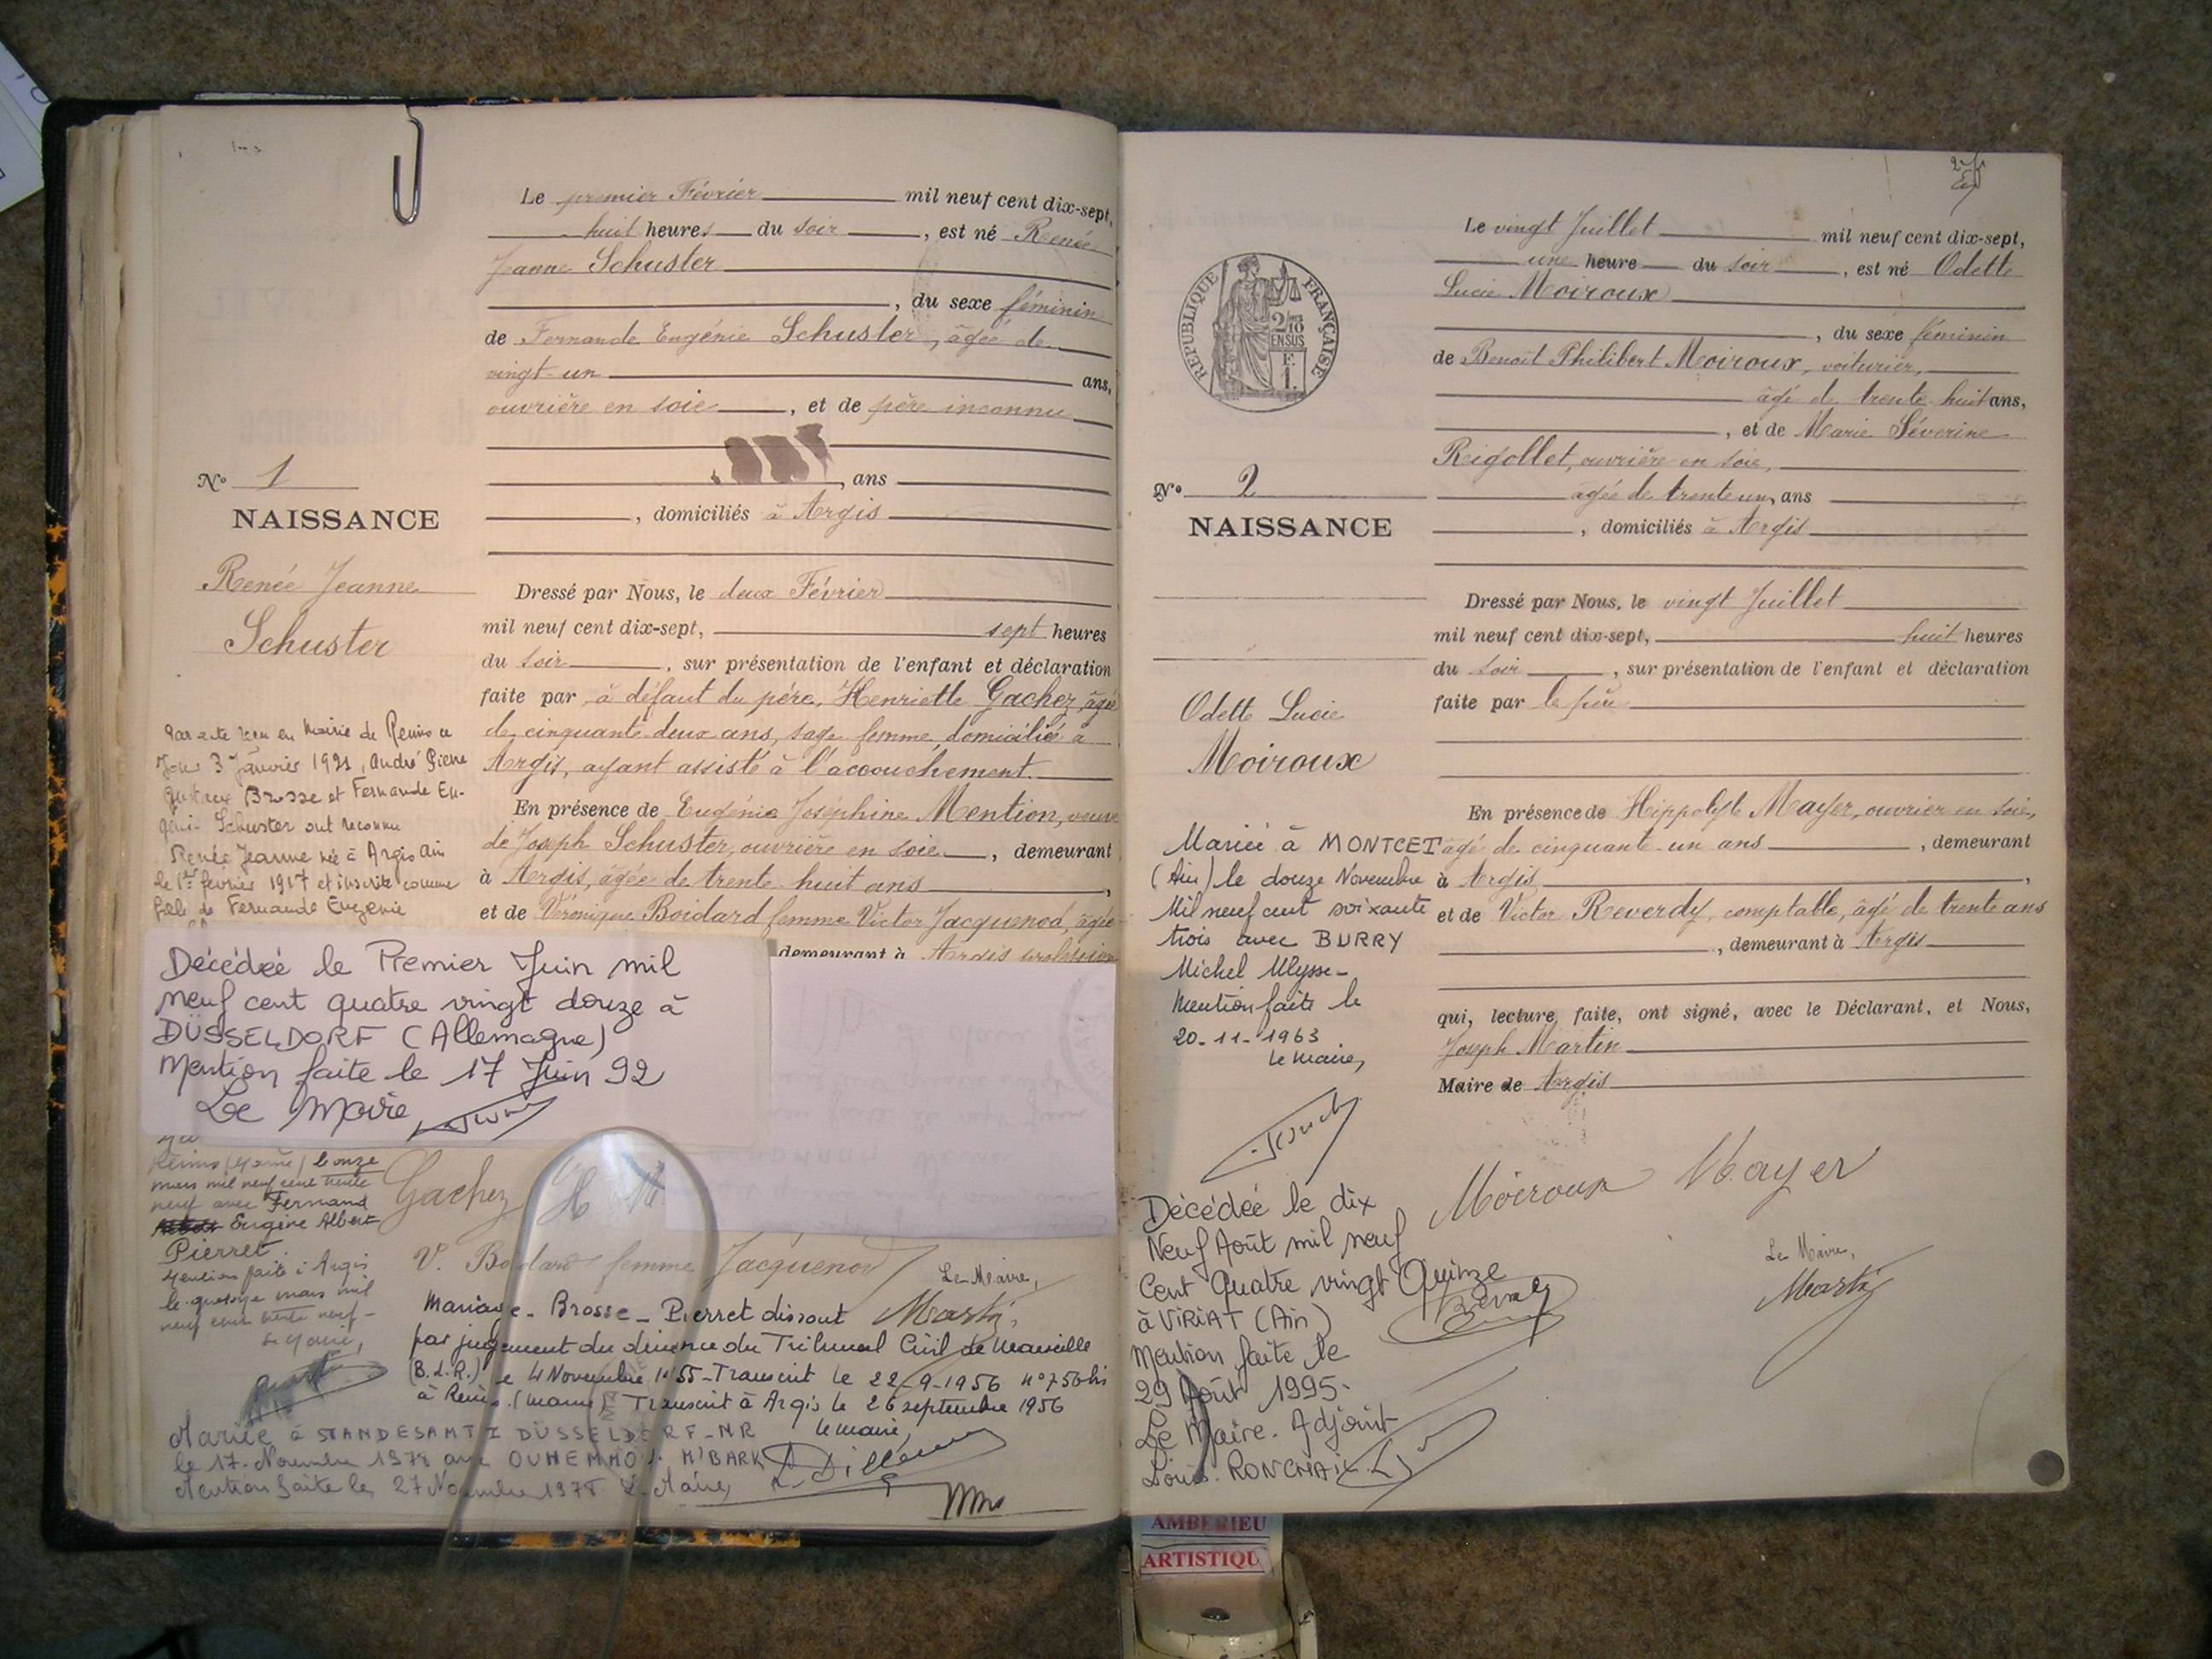 Le premier Février mil neuf cent dix-sept,
huit heures du soir, est né Renée
Jeanne Schuster
, du sexe féminin
de Fernande Eugénie Schuster, âgée de
vingt-un ans,
ouvrière en soie, et de père inconnu
, ans
, domiciliés à Argis
Nº 1
NAISSANCE
Renée Jeanne
Schuster
Dressé par Nous, le deux Février
mil neuf cent dix-sept, sept heures
du soir, sur présentation de l'enfant et déclaration
faite par à défaut du père, Henriette Gachez, âgée
de cinquante deux ans, sage femme, domiciliée à
Argis, ayant assisté à l'accouchement.
En présence de Eugénie Joséphine Mention, veuve
de Joseph Schuster, ouvrière en soie, demeurant
à Argis, âgée de trente huit ans,
et de Véronique Boidard femme Victor Jacquenod, âgée
demeurant à Argis
Par acte reçu en Mairie de Reims ce
jour 3 Janvier 1921, André Pierre
Gustave Brosse et Fernande Eu-
génie Schuster ont reconnu
Renée Jeanne née à Argis Ain
le 1er février 1917 et inscrite comme
fille de Fernande Eugénie
Décédée le Premier Juin mil
neuf cent quatre vingt douze à
DÜSSELDORF (Allemagne)
Mention faite le 17 Juin 92
Le Maire,
Reims (Marne) le onze
mars mil neuf cent trente
neuf avec Fernand
Eugène Albert
Pierret.
Mention faite à Argis
le quatorze mars mil
neuf cent trente neuf-
Le Maire,
Gachez H
V. Boidard femme Jacquenod
Le Maire,
Martin
Mariage - Brosse - Pierret dissout
par jugement du divorce du Tribunal Civil de Marseille
(B.d.R.) le 4 Novembre 1955 - Transcrit le 22-9-1956 nº 756 bis
à Reims (Marne) Transcrit à Argis le 26 septembre 1956
le maire,
Mariée à STANDESAMT I DÜSSELDORF-NR
le 17 Novembre 1978 avec OUHEMMOU M'BARK
Mention faite le 27 Novembre 1978 Le Maire,
Le vingt Juillet mil neuf cent dix-sept,
une heure du soir, est né Odette
Lucie Moiroux
, du sexe féminin
de Benoît Philibert Moiroux, voiturier,
âgé de trente huit ans,
, et de Marie Séverine
Rigollet, ouvrière en soie,
âgée de trente un, ans
, domiciliés à Argis
RÉPUBLIQUE FRANÇAISE
2/10
EN SUS
F.
1.
Nº 2
NAISSANCE
Odette Lucie
Moiroux
Dressé par Nous, le vingt Juillet
mil neuf cent dix-sept, huit heures
du soir, sur présentation de l'enfant et déclaration
faite par le père
En présence de Hippolyte Mayer, ouvrier en soie,
âgé de cinquante un ans, demeurant
à Argis,
et de Victor Reverdy, comptable, âgé de trente ans
, demeurant à Argis
qui, lecture faite, ont signé, avec le Déclarant, et Nous,
Joseph Martin
Maire de Argis
Mariée à MONTCET
(Ain) le douze Novembre
Mil neuf cent soixante
trois avec BURRY
Michel Ulysse-
Mention faite le
20-11-1963
Le Maire,
Moiroux Mayer
Le Maire,
Martin
Décédée le dix
Neuf Août mil neuf
Cent Quatre vingt Quinze
à VIRIAT (Ain)
Mention faite le
29 Août 1995-
Le Maire. Adjoint
Louis
AMBERIEU
ARTISTIQU